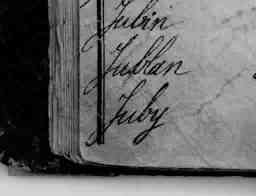 Jubin
Jublan
Juby